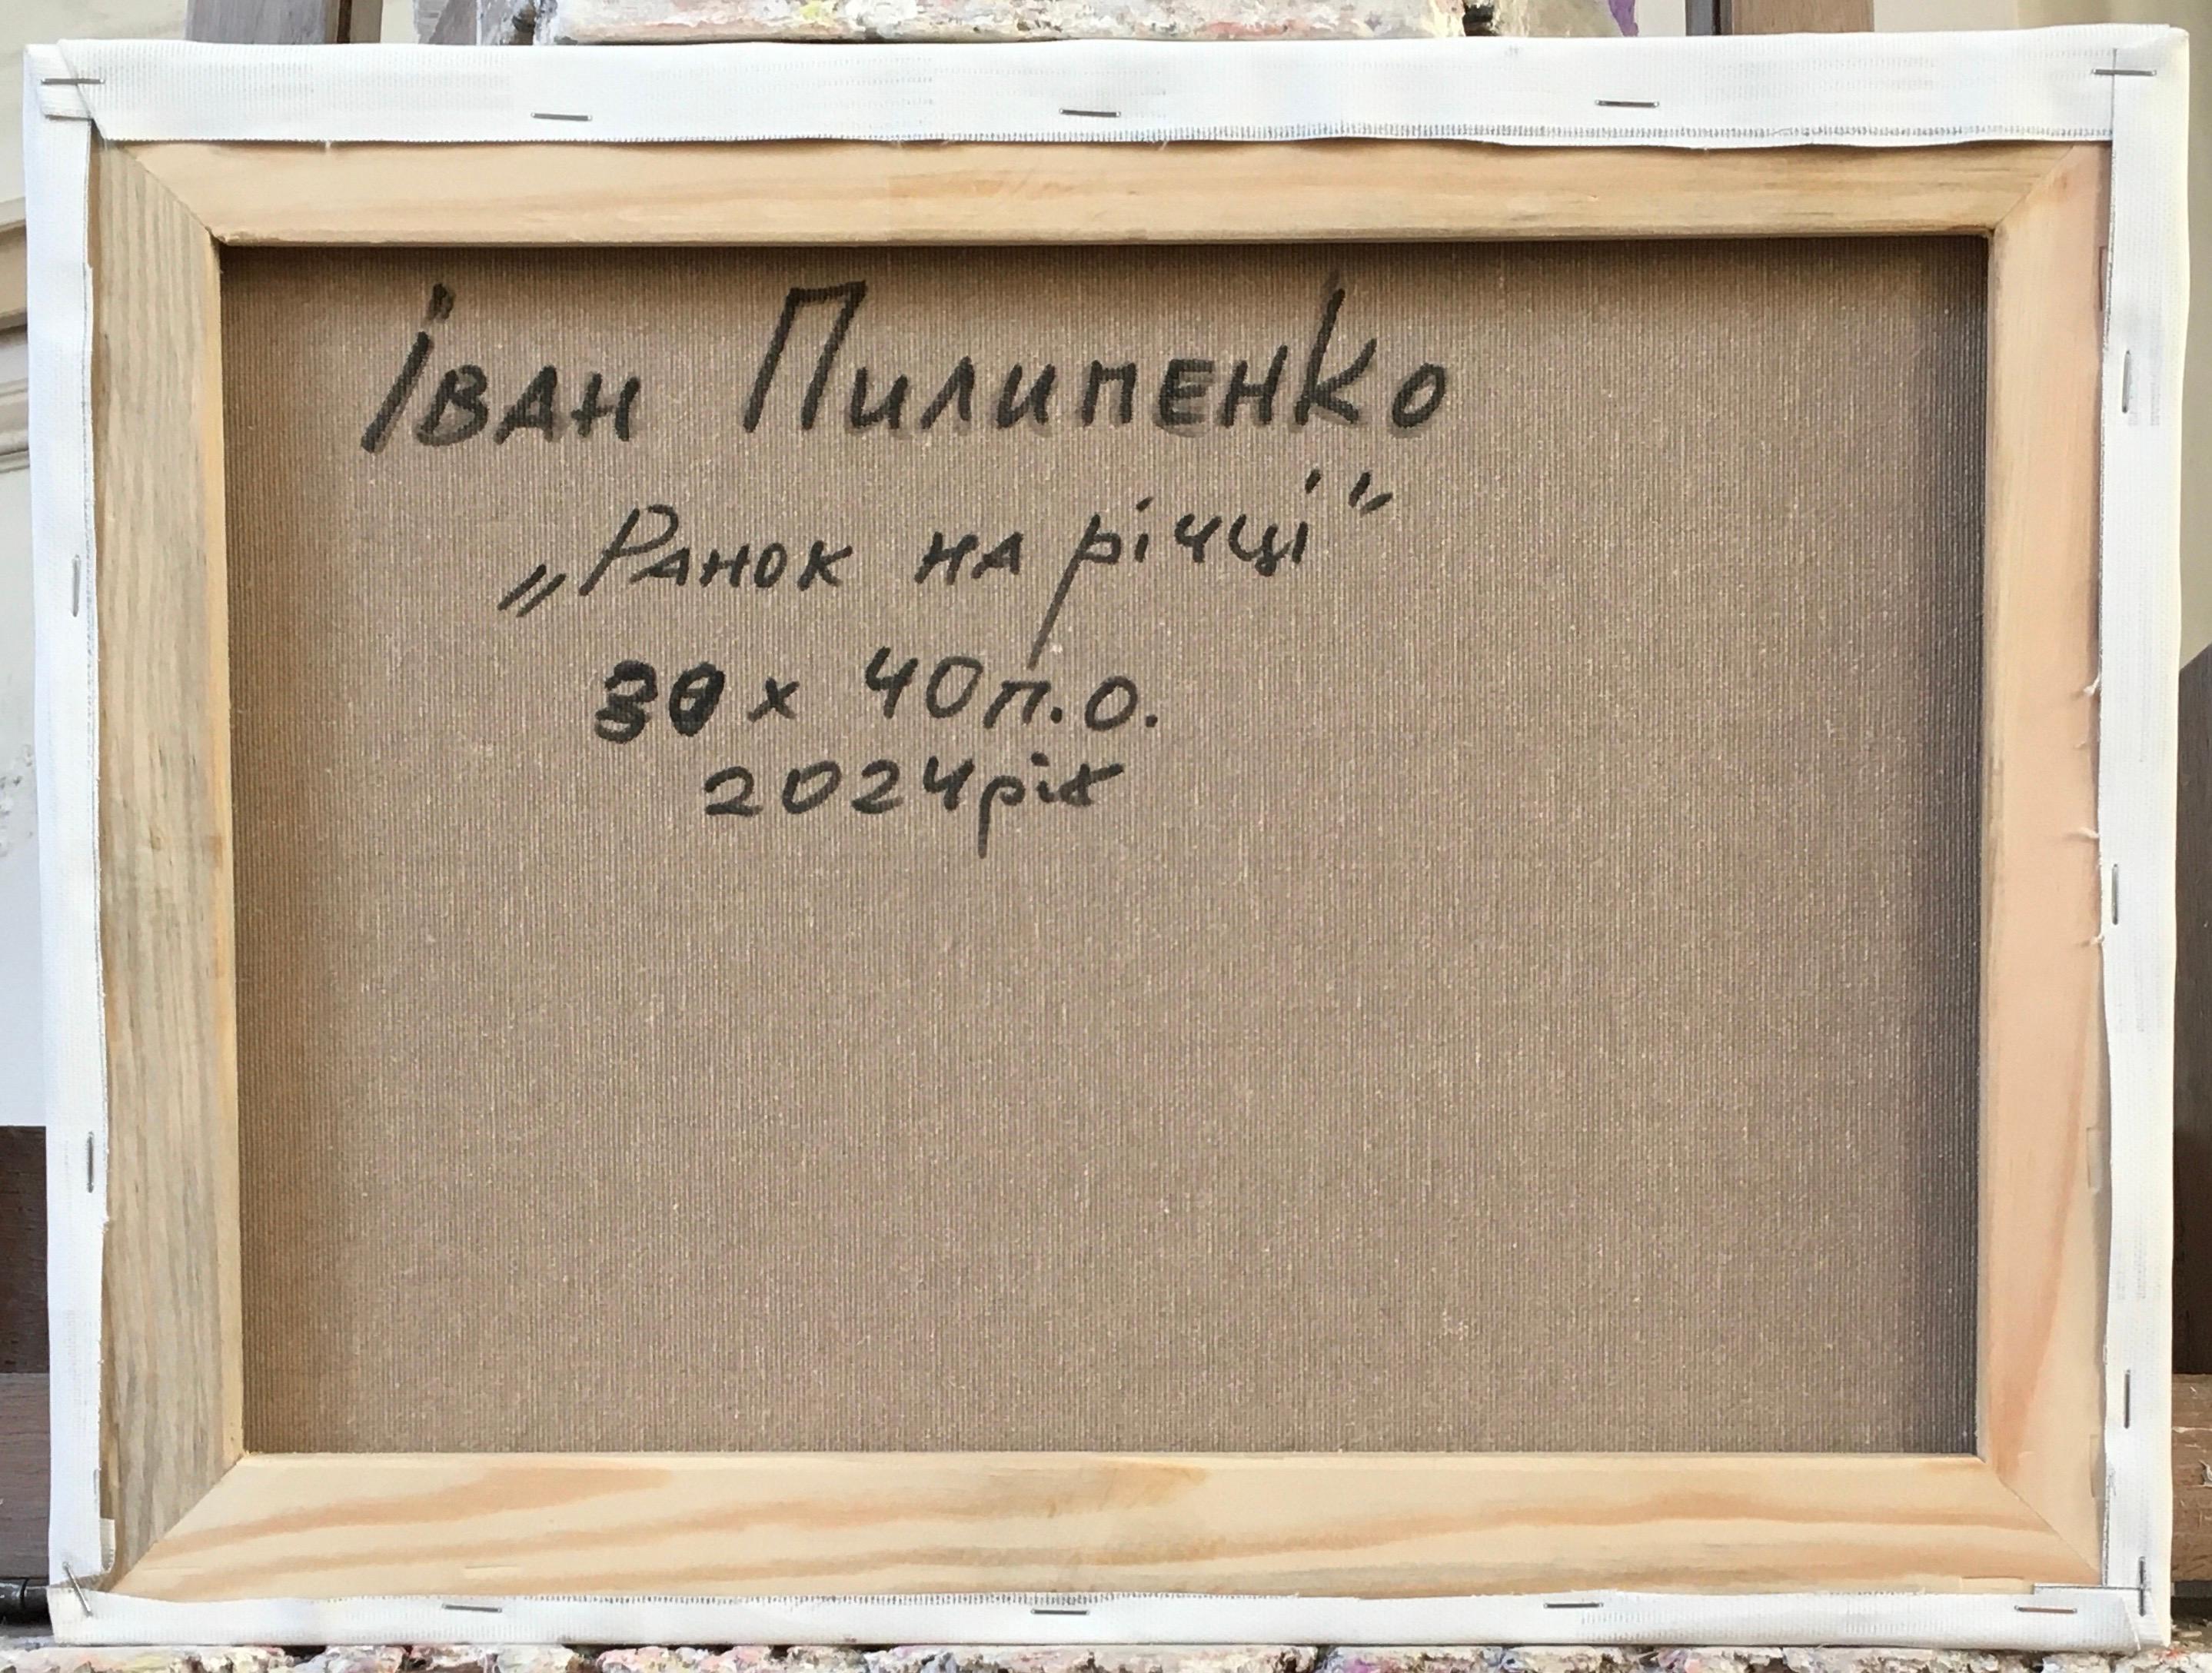 Іван Пилипенко
„Ранок на річці"
30 х 40 п.о.
2024 рік